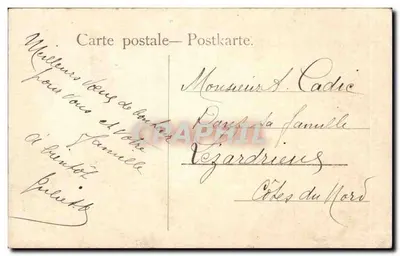 Carte postale — Postkarte.
Meilleurs vœux de bonheur
pour vous et votre
famille
à bientôt
Juliette
Monsieur A. Cadic
Dans sa famille
Lézardrieux
Côtes du Nord
CPAPHIL